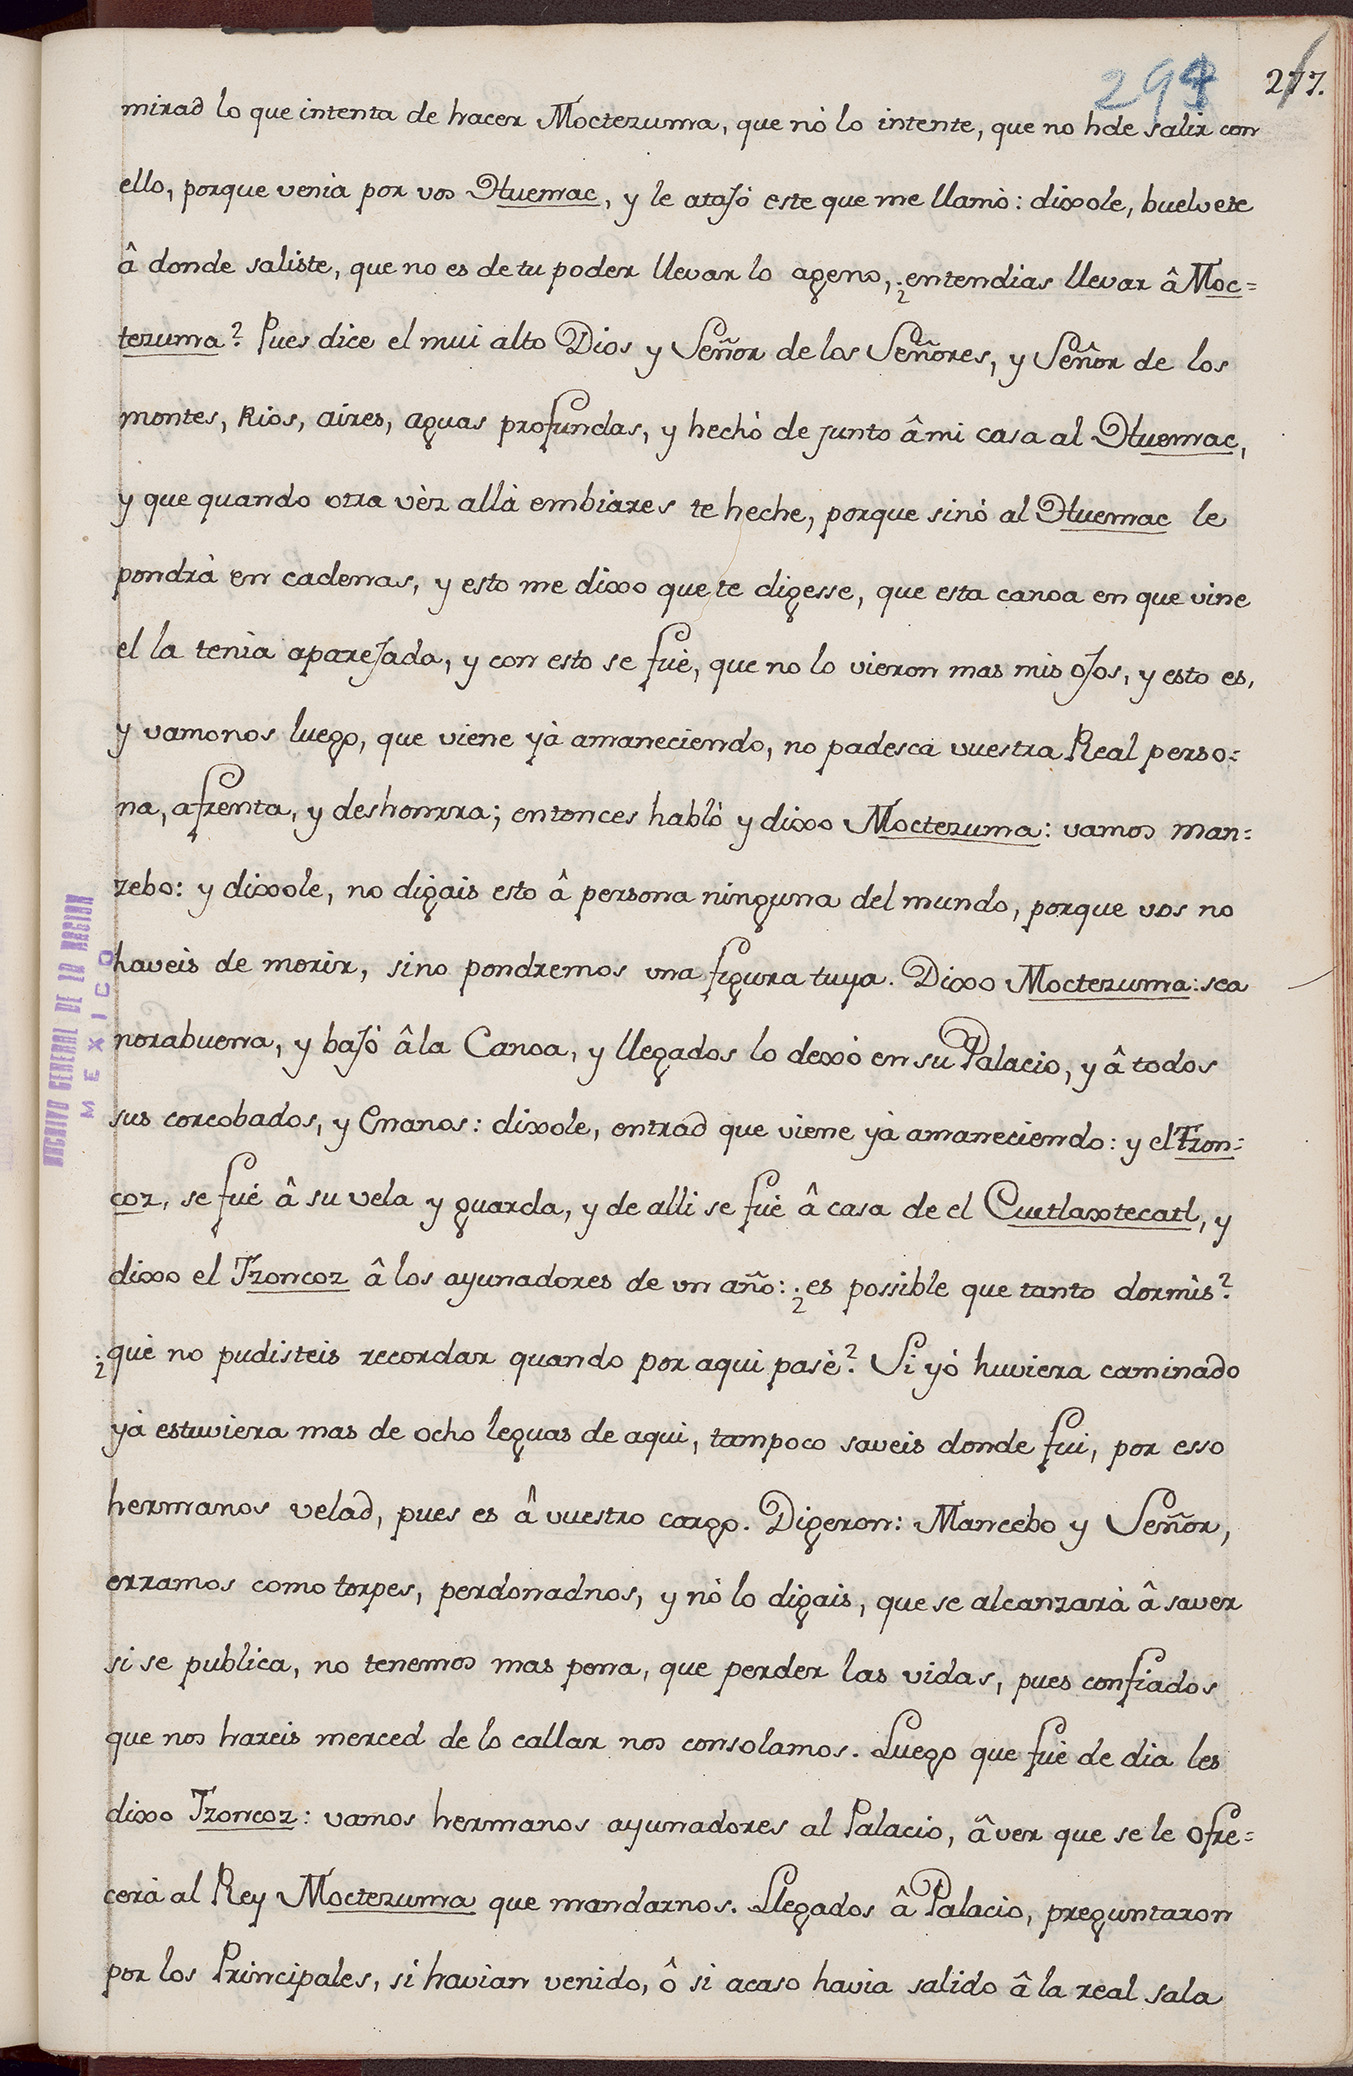 294 277.
mirad lo que intenta de hacer Moctezuma, que nò lo intente, que no hde salir con
ello, porque venìa por vos Huemac, y le atajó este que me llamò: dixole, buelvete
â donde saliste, que no es de tu poder llevar lo ageno, ¿entendias llevar â Moc=
tezuma? Pues dice el mui alto Dios y Señor de los Señores, y Señor de los
montes, Rios, aires, aguas profundas, y hechò de junto â mi casa al Huemac,
y que quando otra vèz allà embiares te heche, porque sinò al Huemac le
pondrà en cadenas, y esto me dixo que te digesse, que esta canoa en que vine
el la tenìa aparejada, y con esto se fuè, que no lo vieron mas mis ojos, y esto es,
y vamonos luego, que viene yà amaneciendo, no padesca vuestra Real perso=
na, afrenta, y deshonrra; entonces hablò y dixo Moctezuma: vamos man=
zebo: y dixole, no digais esto â persona ninguna del mundo, porque vos no
haveis de morir, sino pondremos una figura tuya. Dixo Moctezuma: sea
norabuena, y bajó â la Canoa, y llegados lo dexó en su Palacio, y â todos
sus corcobados, y Enanos: dixole, entrad que viene yà amaneciendo: y el Tzon=
coz, se fué â su vela y guarda, y de alli se fuè â casa de el Cuetlaxtecatl, y
dixo el Tzoncoz â los ayunadores de un año: ¿es possible que tanto dormìs?
¿què no pudisteis recordar quando por aqui pasè? Si yó huviera caminado
yà estuviera mas de ocho leguas de aqui, tampoco saveis donde fui, por esso
hermanos velad, pues es â vuestro cargo. Digeron: Mancebo y Señor,
erramos como torpes, perdonadnos, y nò lo digais, que se alcanzarà â saver
si se publica, no tenemos mas pena, que perder las vidas, pues confiados
que nos hareis merced de lo callar nos consolamos. Luego que fuè de dia les
dixo Tzoncoz: vamos hermanos ayunadores al Palacio, â ver que se le ofre=
cerà al Rey Moctezuma que mandarnos. Llegados â Palacio, preguntaron
por los Principales, si havian venido, ô si acaso havia salido â la real sala
ARCHIVO GENERAL DE LA NACION
MEXICO